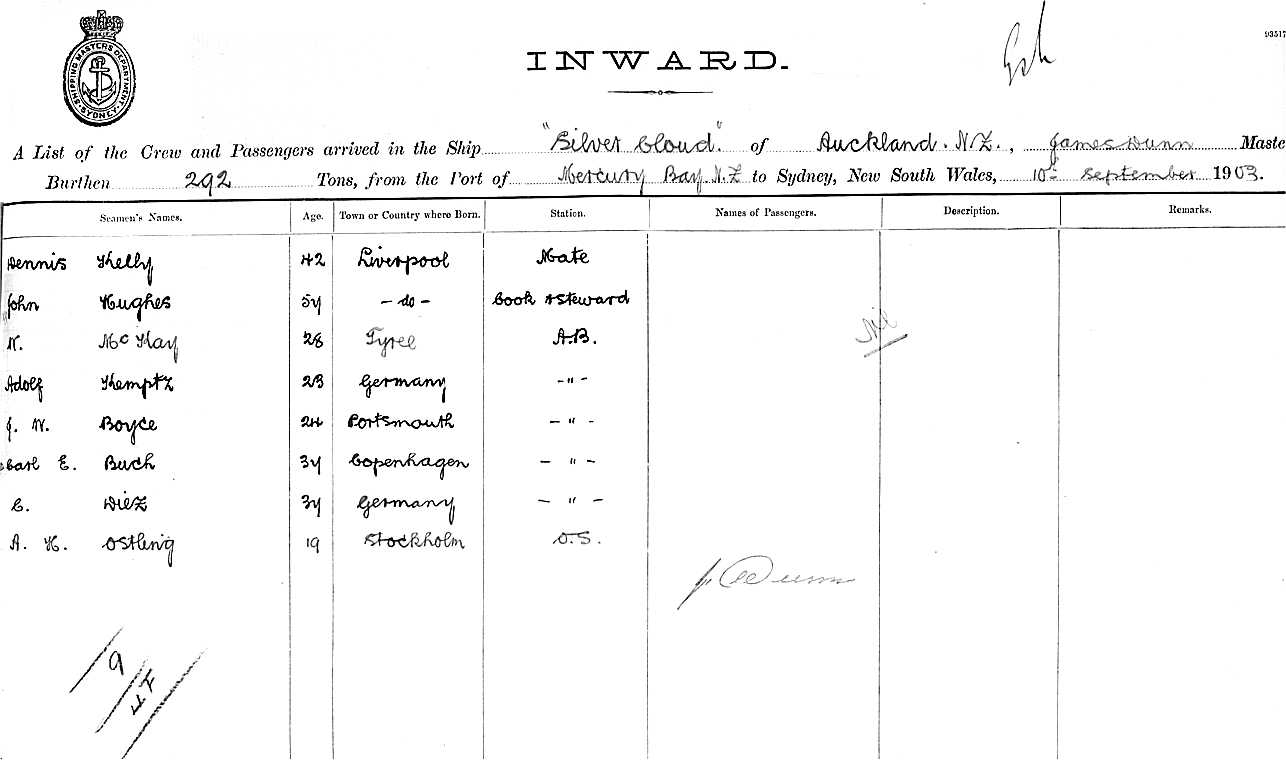 93517
INWARD.
SHIPPING MASTERS DEPARTMENT SYDNEY
A List of the Crew and Passengers arrived in the Ship "Silver Cloud" of Auckland. N.Z., James Dunn Maste
Burthen 292 Tons, from the Port of Mercury Bay N.Z to Sydney, New South Wales, 10- September 1903.
Seamen's Names. Age. Town or Country where Born. Station. Names of Passengers. Description. Remarks.
Dennis Kelly 42 Liverpool Mate
John Hughes 54 -do- Cook & Steward
N. McKay 28 Tyree A.B. Nil
Adolf Kemptz 23 Germany -"-
J. W. Boyce 24 Portsmouth -"-
Carl E. Buch 34 Copenhagen -"-
C. Diez 34 Germany -"-
A. H. Ostling 19 Stockholm O.S.
J. Dunn
9